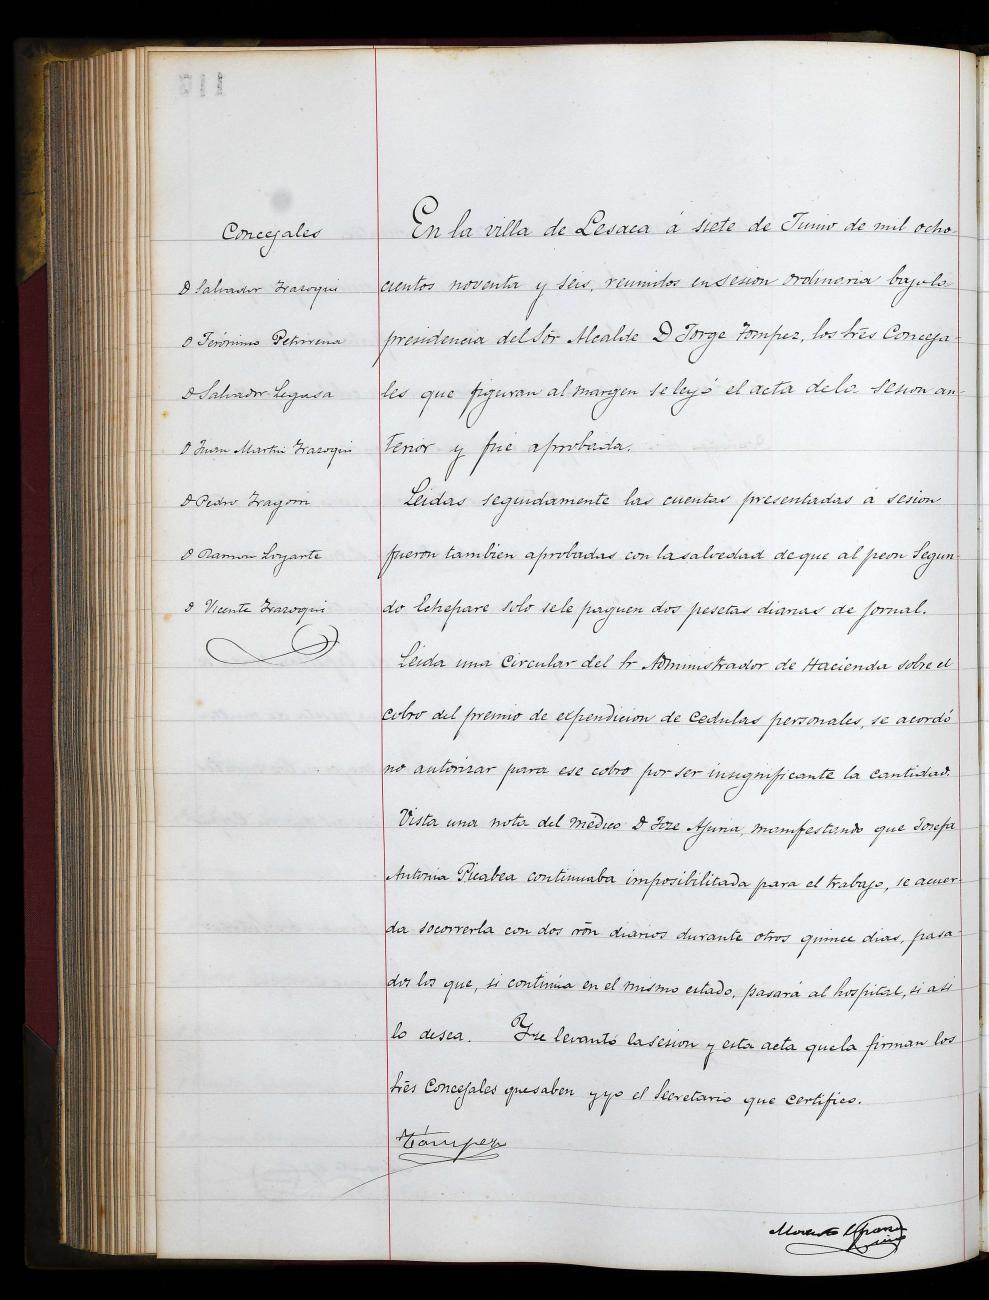 Concejales
D Salvador Irazoqui
D Jerónimo Petrirena
D Salvador Legasa
D Juan Martin Irazoqui
D Pedro Iragorri
D Ramon Loyarte
D Vicente Irazoqui
En la villa de Lesaca á siete de Junio de mil ocho-
cientos noventa y seis, reunidos en sesion ordinaria bajo la
presidencia del Sõr Alcalde D Jorge Tompez, los Srẽs Conceja-
les que figuran al margen se leyó el acta de la sesion an-
terior y fué aprobada.
Leidas seguidamente las cuentas presentadas á sesion
fueron tambien aprobadas con la salvedad de que al peon Segun-
do Echepare solo se le paguen dos pesetas diarias de jornal.
Leida una Circular del Sr Administrador de Hacienda sobre el
cobro del premio de expendicion de cedulas personales, se acordó
no autorizar para ese cobro por ser insignificante la cantidad.
Vista una nota del médico D manifestando que Josefa
Antonia Picabea continuaba imposibilitada para el trabajo, se acuer-
da socorrerla con dos rõn diarios durante otros quince dias, pasa-
dos los que, si continúa en el mismo estado, pasará al hospital, si asi
lo desea. Y se levantó la sesion y esta acta que la firman los
Srẽs Concejales que saben y yo el Secretario que certifico.
Tómpez